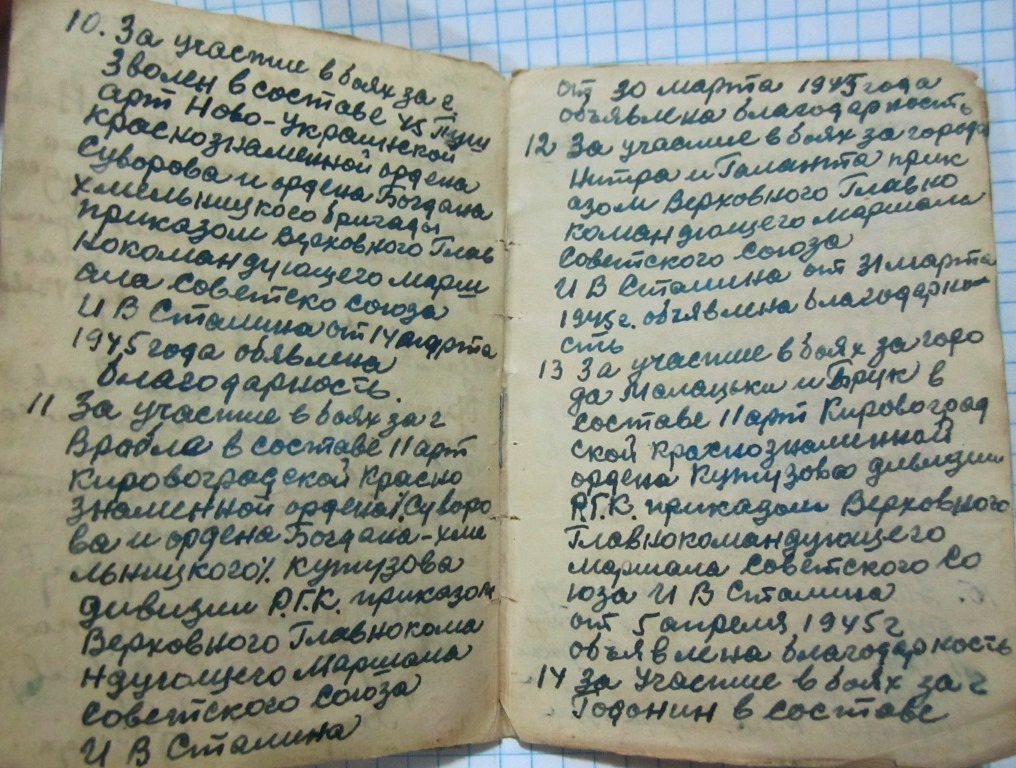 10. За участие в боях за г.
Зволен в составе 45 пуш
арт Ново-Украинской
краснознаменной ордена
Суворова и ордена Богдана
хмельницкого бригады
приказом Верховного Глав
нокомандующего марш
ала Советско союза
И В Сталина от 14 марта
1945 года обявлена
благодарность.
11 За участие в боях за г
Врабле в составе 11 арт
Кировоградской Красно
Знаменной ордена /.Суворо
ва и ордена Богдана-хме
льницкого/. кутузова
дивизии Р.Г.К. приказом
Верховного Главнокома
ндующего Маршала
Советского союза
И В Сталина
от 30 марта 1945 года
объявлена благодарность
12 За участие в боях за города
Нитра и Галанта прик
азом Верховного Главно
командующего маршала
Советского Союза
И В Сталина от 31 марта
1945 г. объявлена благодарно
сть
13 За участие в боях за горо
да Малацьки и Брук в
составе 11 арт Кировоград
ской Краснознаменной
ордена Кутузова дивизии
Р.Г.К. приказом Верховного
Главнокомандующего
маршала Советского Со
юза И В Сталина
от 5 апреля 1945 г
объявлена благодарность
14 За Участие в боях за г
Годонин в составе